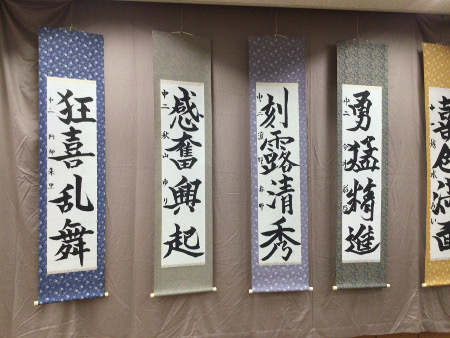 狂喜乱舞
感奮興起
中二 秋山 ゆり
刻露清秀
中二
勇猛精進
中二
喜色満面